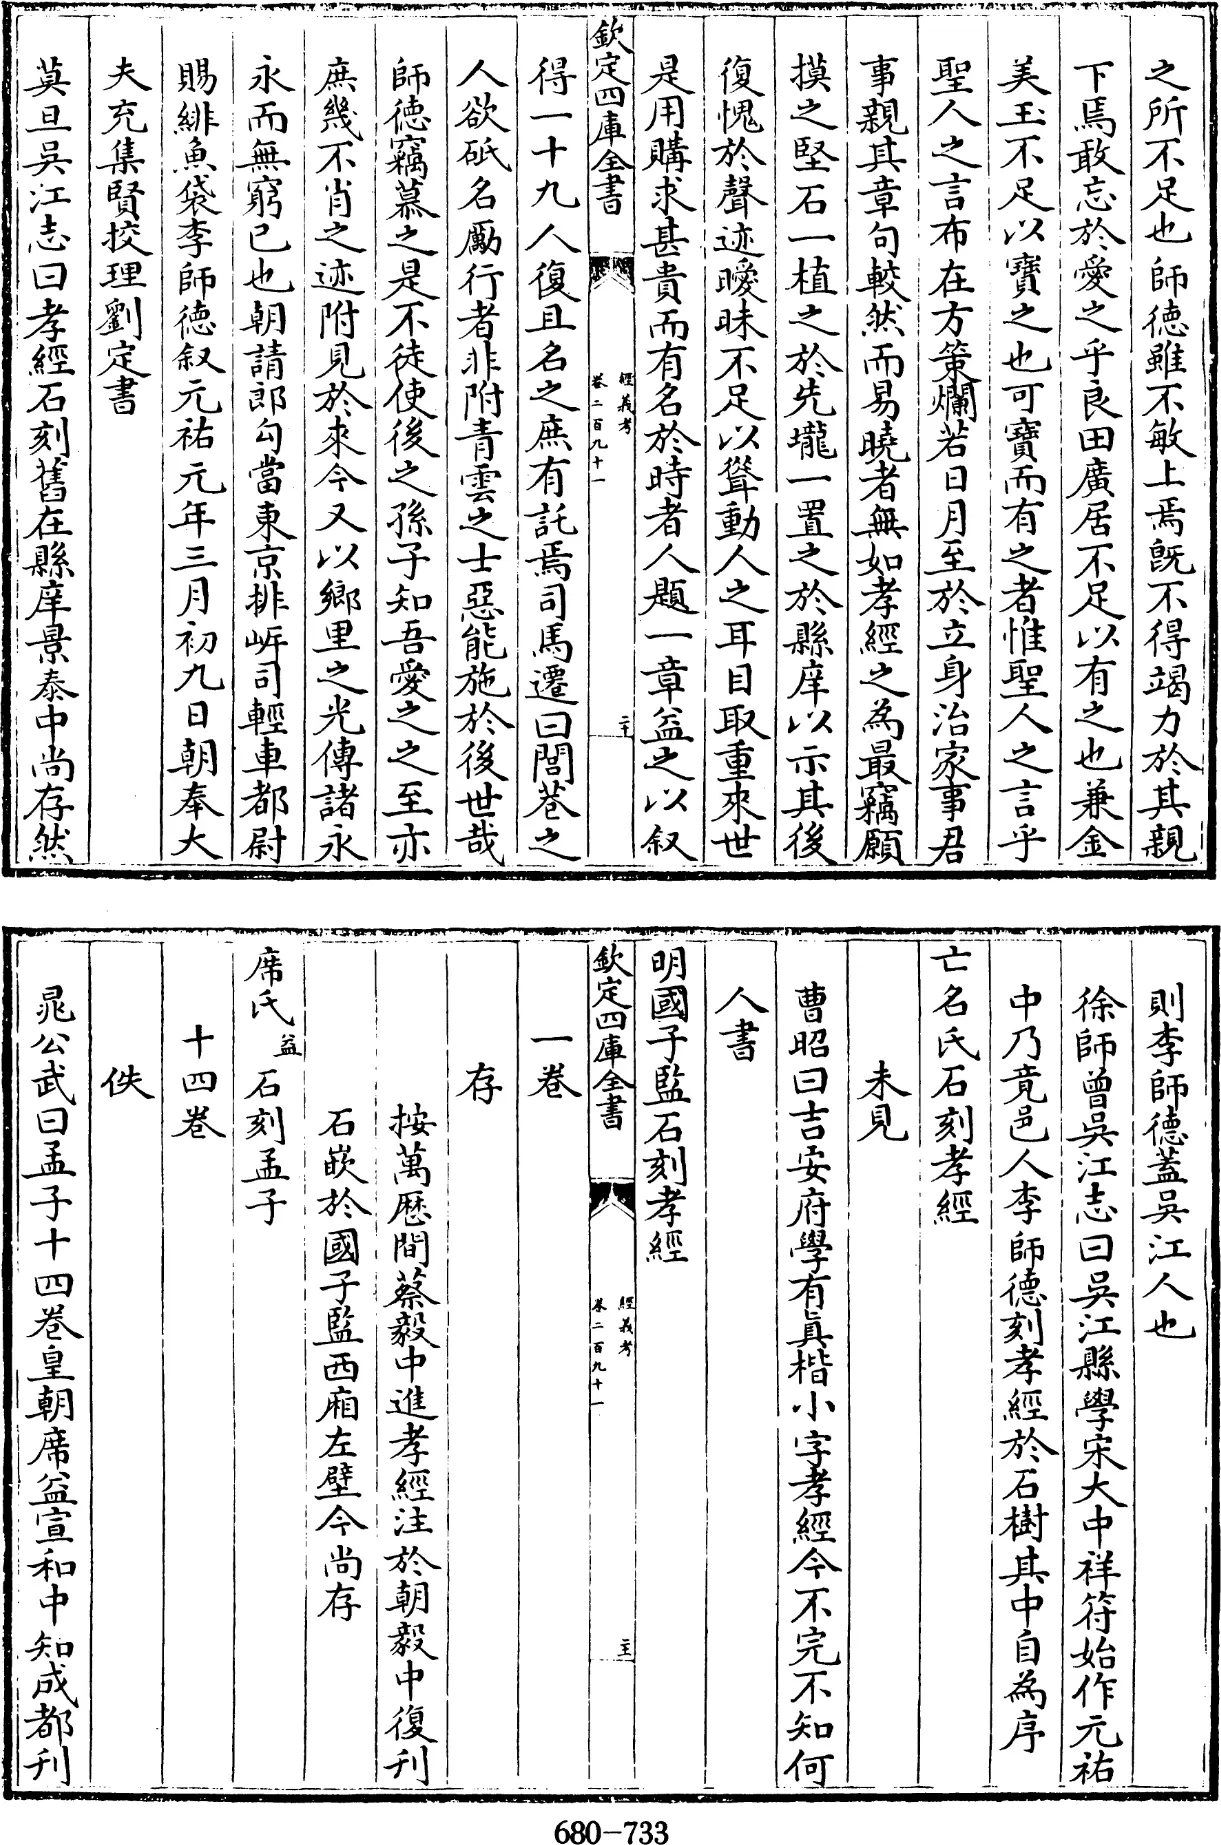 之所不足也師德雖不敏上焉旣不得竭力於其親
下焉敢忘於愛之乎良田廣居不足以有之也兼金
美玉不足以寶之也可寶而有之者惟聖人之言乎
聖人之言布在方策爛若日月至於立身治家事君
事親其章句較然而易曉者無如孝經之為最竊願
摸之堅石一植之於先壠一置之於縣庠以示其後
復愧於聲迹曖昧不足以聳動人之耳目取重來世
是用購求甚貴而有名於時者人題一章益之以叙
欽定四庫全書
經義考
卷二百九十一
二十
得一十九人復且名之庶有託焉司馬遷曰閭巷之
人欲砥名勵行者非附青雲之士惡能施於後世哉
師德竊慕之是不徒使後之孫子知吾愛之之至亦
庶幾不肖之迹附見於來今又以鄉里之光傳諸永
永而無窮已也朝請郎勾當東京排岍司輕車都尉
賜緋魚袋李師德叙元祐元年三月初九日朝奉大
夫充集賢挍理劉定書
莫旦吳江志曰孝經石刻舊在縣庠景泰中尚存然
則李師德蓋吳江人也
徐師曾吳江志曰吳江縣學宋大中祥符始作元祐
中乃竟邑人李師德刻孝經於石樹其中自為序
亡名氏石刻孝經
未見
曹昭曰吉安府學有眞楷小字孝經今不完不知何
人書
明國子監石刻孝經
欽定四庫全書
經義考
卷二百九十一
二十一
一卷
存
按萬厯間蔡毅中進孝經注於朝毅中復刋
石嵌於國子監西廂左壁今尚存
席氏益石刻孟子
十四卷
佚
晁公武曰孟子十四卷皇朝席益宣和中知成都刋
680-733